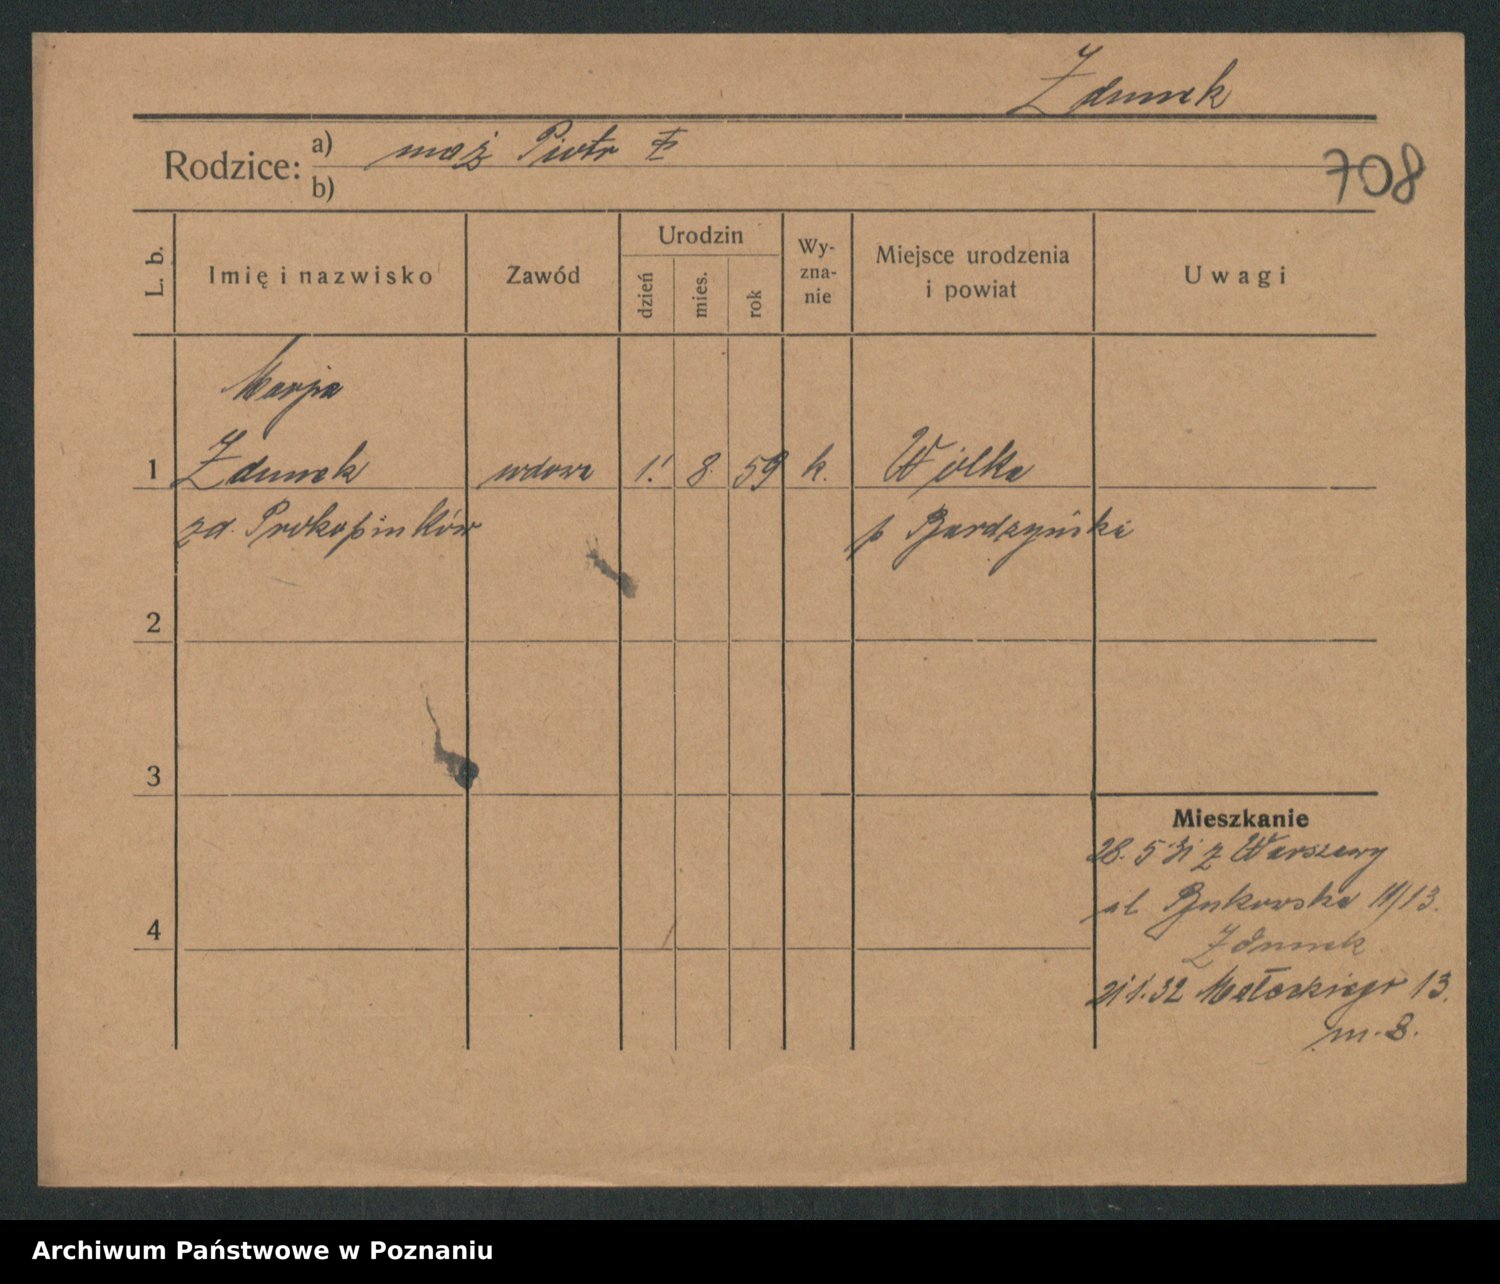 Zdunek
Rodzice: a) mąż Piotr
b)
708
L. b.
Imię i nazwisko
Zawód
Urodzin
dzień
mies.
rok
Wy-
zna-
nie
Miejsce urodzenia
i powiat
Uwagi
Marja
1 Zdunek wdowa 1. 8. 59 k. Wólka
zd. Prokopinków p
2
3
Mieszkanie
28. 5 31 z Warszawy
ul Bukowska 11/13.
4
Zdunek
21.1.32 Małeckiego 13.
m. 8.
Archiwum Państwowe w Poznaniu